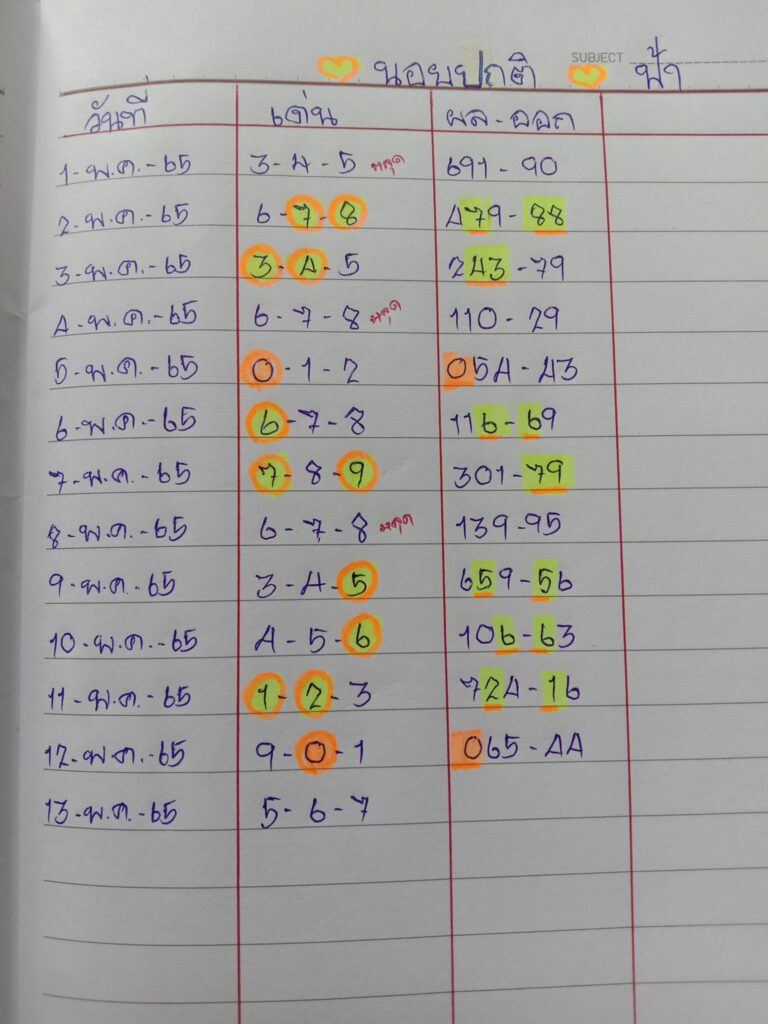 SUBJECT
นอยปกติ ป้า
วันที่ เด่น ผล-ออก
1-พ.ค.-65 3-4-5 หลุด 691-90
2-พ.ค.-65 6-7-8 479-88
3-พ.ค.-65 3-4-5 243-79
4-พ.ค.-65 6-7-8 หลุด 110-29
5-พ.ค.-65 0-1-2 054-43
6-พ.ค.-65 6-7-8 116-69
7-พ.ค.-65 7-8-9 301-79
8-พ.ค.-65 6-7-8 หลุด 139-95
9-พ.ค.-65 3-4-5 659-56
10-พ.ค.-65 4-5-6 106-63
11-พ.ค.-65 1-2-3 724-16
12-พ.ค.-65 9-0-1 065-44
13-พ.ค.-65 5-6-7